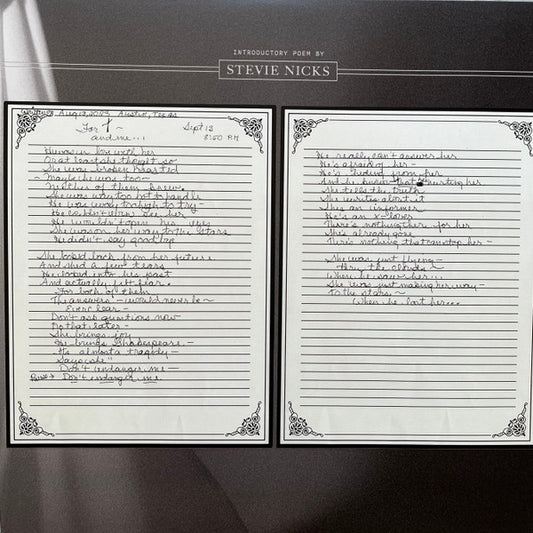 INTRODUCTORY POEM BY
STEVIE NICKS
Written Aug 13, 2023 Austin, Texas
For T ~
and me...
Sept 13
8:00 PM
He was in love with her
Or at least she thought so
She was broken hearted
~ Maybe he was too ~
Neither of them knew.
She was way too hot to handle
He was way too high to try
He couldn't even see her
He wouldn't open his eyes
She was on her way to the stars
He didn't say goodbye
She looked back from her future
And shed a few tears
He looked into his past
And actually felt fear.
For both of them
The answers — would never be ~
Ever clear —
Don't ask questions now
Do that later —
She brings joy
He brings Shakespeare —
It's almost a tragedy —
Says she"
Don't endanger me —
Don't endanger me.
He really can't answer her
He's afraid of her —
He's from her
And he knows that hurting her
She tells the truth
She writes about it
She's an informer
He's an x-lover
There's nothing there for her
She's already gone
There's nothing that can stop her —
She was just flying —
thru the clouds ~
When he saw her...
She was just making her way —
to the stars ~
When he lost her...